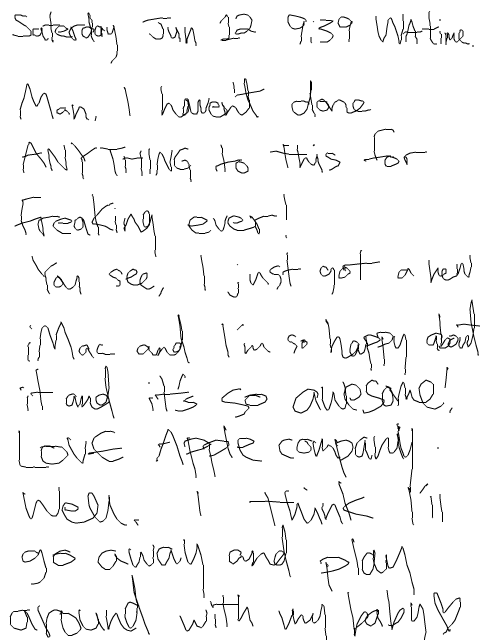 Saterday Jun 12 9:39 WA time.
Man, I haven't done
ANYTHING to this for
freaking ever!
You see, I just got a new
iMac and I'm so happy about
it and it's so awesome!
LOVE Apple company.
Well, I think I'll
go away and play
around with my baby♡